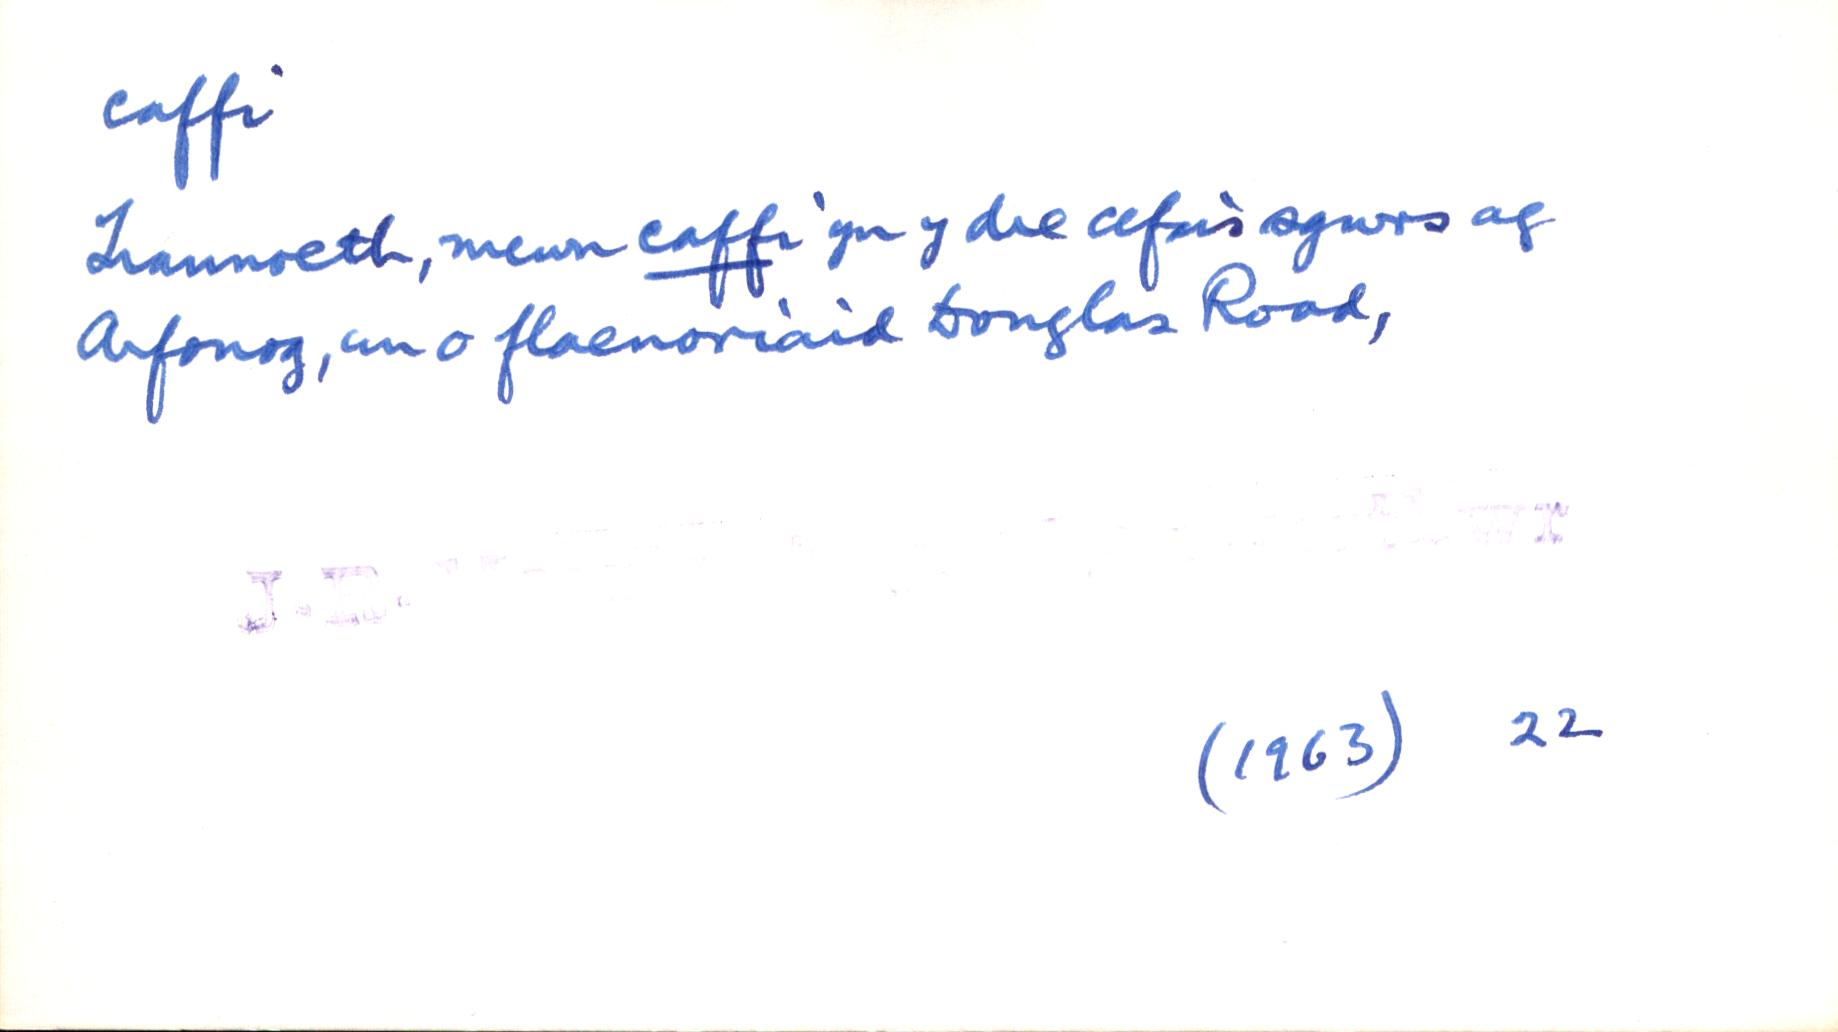 caffi
Trannoeth, mewn caffi yn y dre cefais sgwrs ag
Arfonog, un o flaenoriaid Douglas Road,
J. E.
(1963) 22